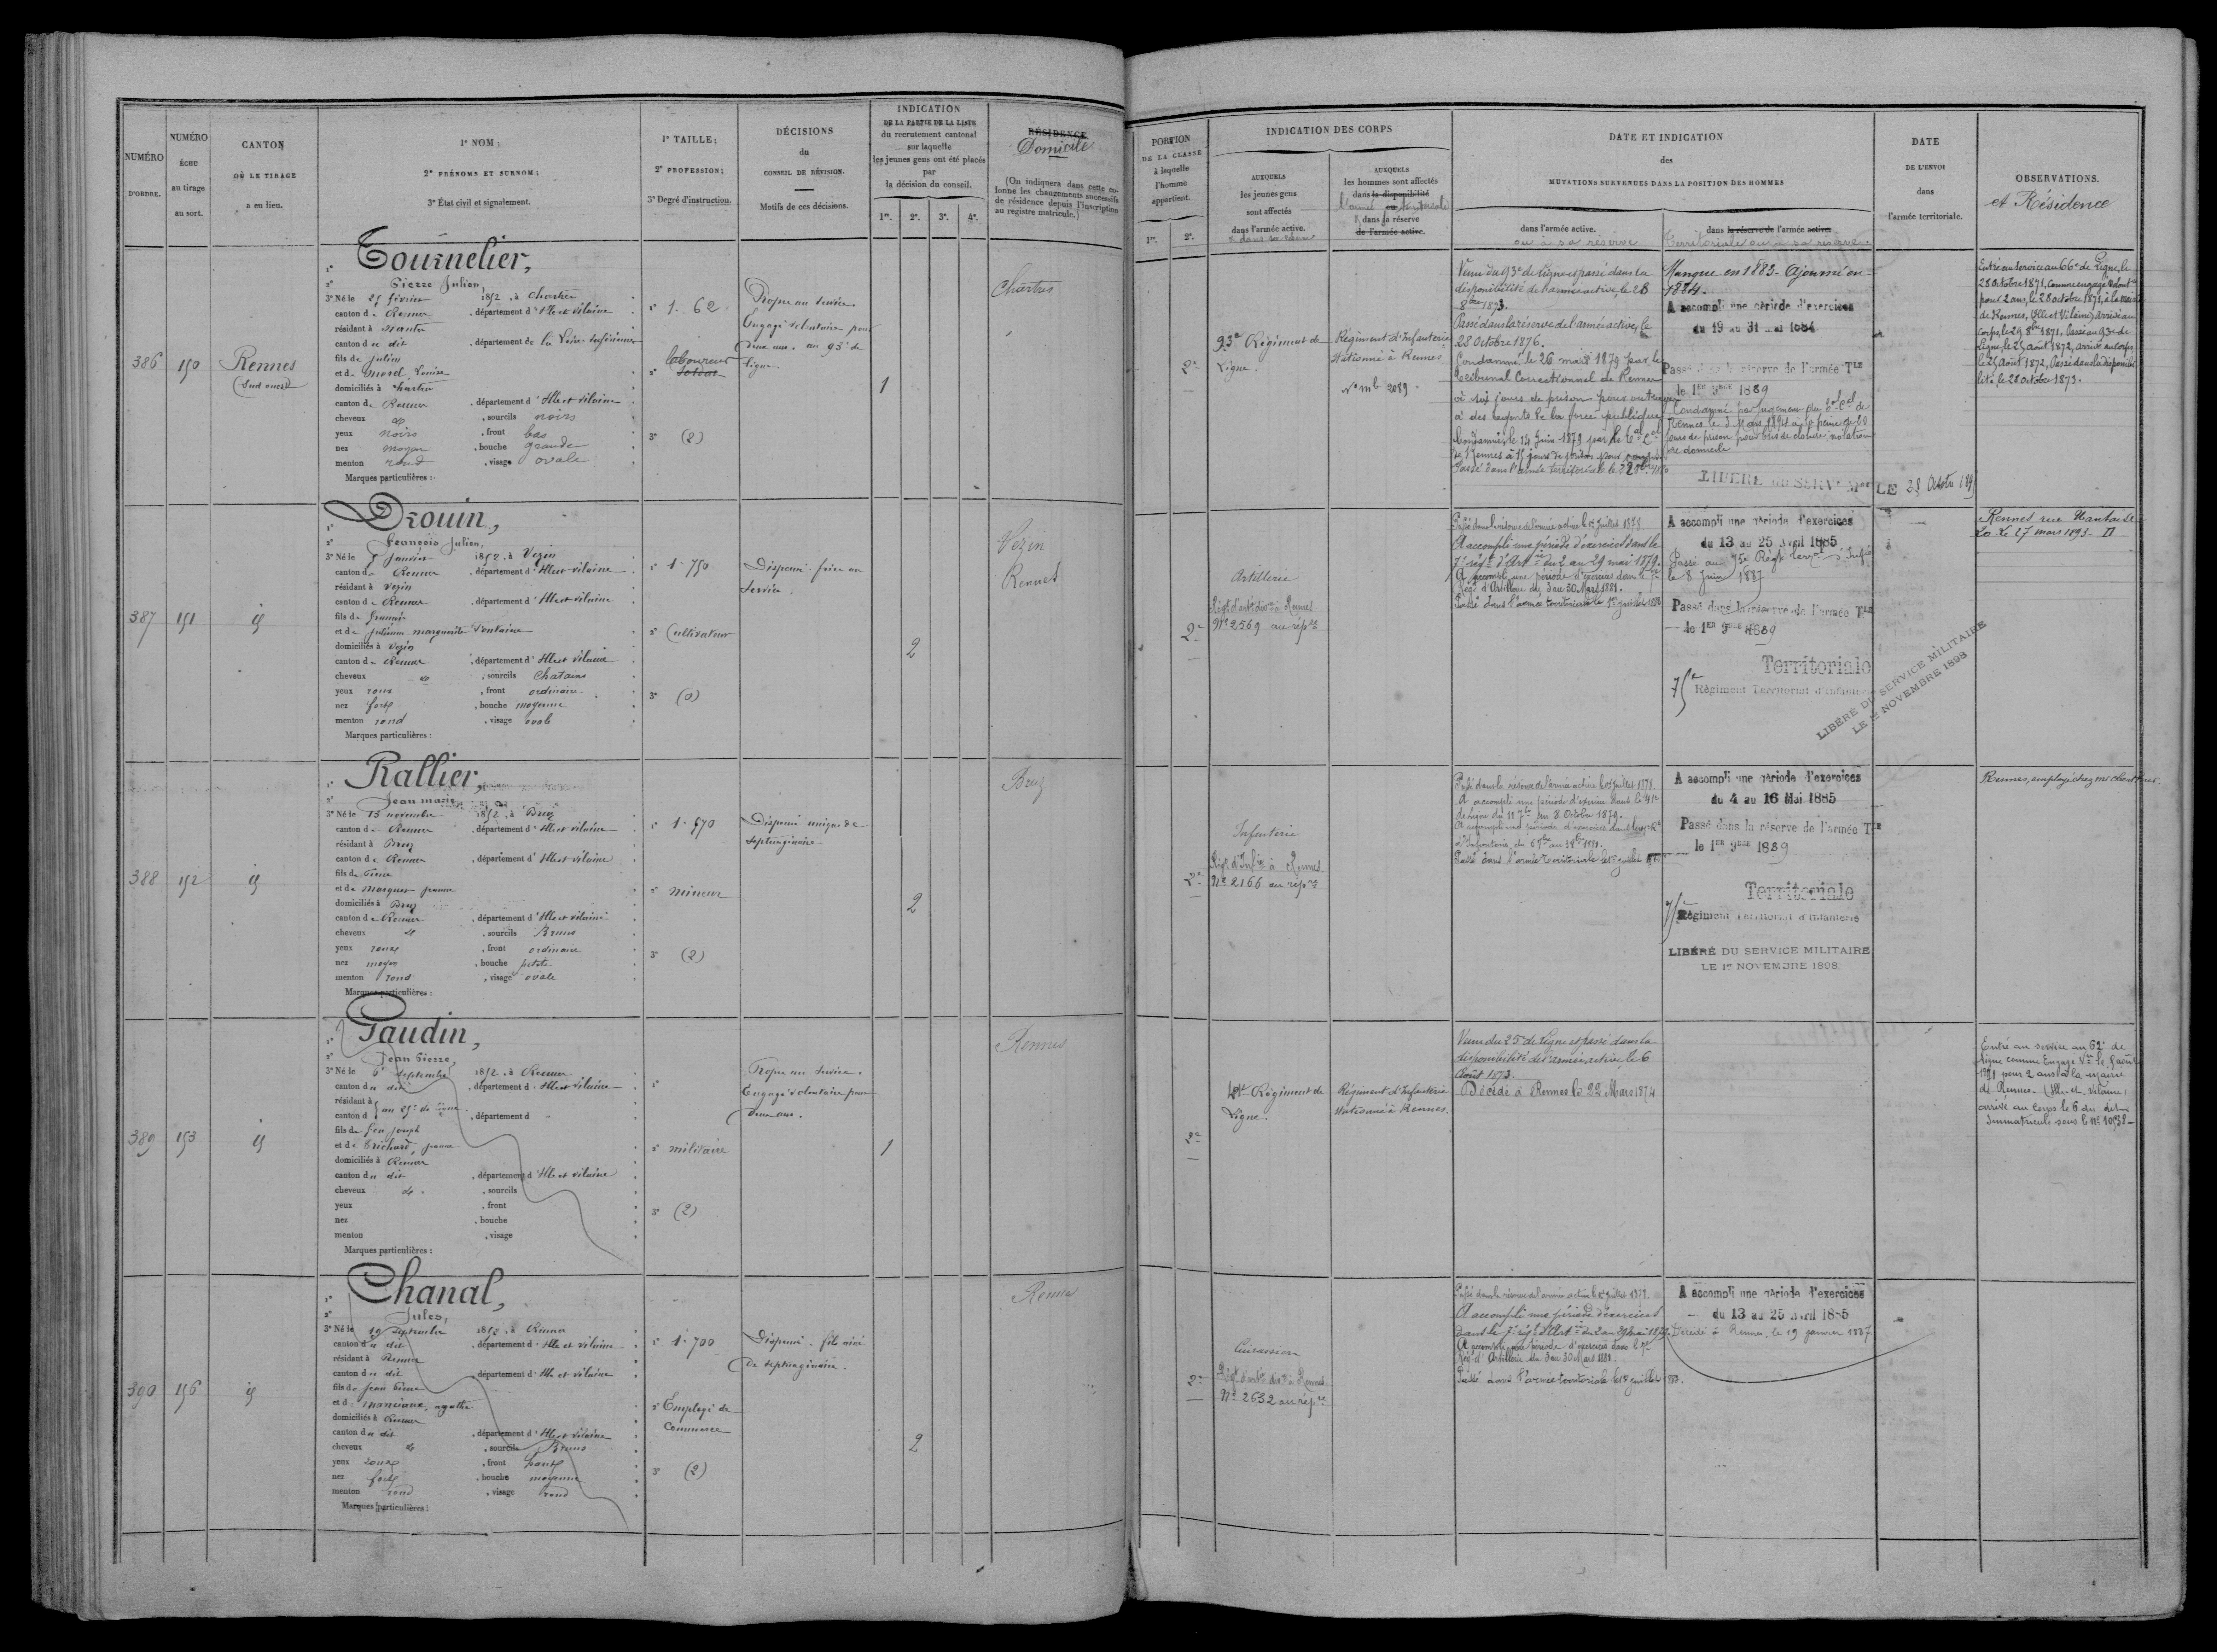 NUMÉRO
D'ORDRE.
NUMÉRO
ÉCHU
au tirage
au sort.
CANTON
OÙ LE TIRAGE
a eu lieu.
1º NOM;
2º PRÉNOMS ET SURNOM;
3º État civil et signalement.
1º TAILLE;
2º PROFESSION;
3º Degré d'instruction.
DÉCISIONS
du
CONSEIL DE RÉVISION.
Motifs de ces décisions.
INDICATION
DE LA PARTIE DE LA LISTE
du recrutement cantonal
sur laquelle
les jeunes gens ont été placés
par
la décision du conseil.
1re. 2e. 3e. 4e.
RÉSIDENCE
Domicile
(On indiquera dans cette co-
lonne les changements successifs
de résidence depuis l'inscription
au registre matricule.)
PORTION
DE LA CLASSE
à laquelle
l'homme
appartient.
1re. 2e.
INDICATION DES CORPS
AUXQUELS
les jeunes gens
sont affectés
dans l'armée active.
AUXQUELS
les hommes sont affectés
dans la disponibilité
dans la réserve
de l'armée active.
DATE ET INDICATION
des
MUTATIONS SURVENUES DANS LA POSITION DES HOMMES
dans l'armée active.
ou à sa réserve
dans la réserve de l'armée active.
Territoriale ou à sa réserve.
DATE
DE L'ENVOI
dans
l'armée territoriale.
OBSERVATIONS.
et Résidence
386 150 Rennes
(Sud ouest)
1º Tournelier,
2º Pierre Julien,
3º Né le 25 février 1852, à Chartres
canton de Rennes, département d'Ille et Vilaine
résidant à Nantes
canton du dit, département de la Loire Inférieure
fils de Julien
et de Morel, Louise
domiciliés à Chartres
canton de Rennes, département d'Ille et Vilaine
cheveux et, sourcils noirs
yeux noirs, front bas
nez moyen, bouche grande
menton rond, visage ovale
Marques particulières :
1º 1. 62
2º laboureur
Soldat
3º (2)
Propre au service.
Engagé volontaire pour
deux ans. au 93e de
ligne.
1
Chartres
2e
93e Régiment de
Ligne.
Régiment d'Infanterie
stationné à Rennes
No mle 2089.
Venu du 93e de Ligne et passé dans la
disponibilité de l'armée active, le 28
8bre 1873.
Passé dans la réserve de l'armée active, le
28 octobre 1876.
Condamné le 26 mars 1879 par le
Tribunal Correctionnel de Rennes
à six jours de prison pour outrages
à des agents de la force publique
Condamné le 14 Juin 1879 par le
de Rennes à 15 jours de prison pour
Passé dans l'armée territoriale le
Manque en 1883. Ajourné en
1884.
A accompli une période d'exercices
du 19 au 31 Mai 1884
Passé dans la réserve de l'armée Tle
le 1er 9bre 1889
Condamné par jugement du
Rennes le 3 Mars 1894 à la peine de
jours de prison pour bris de clôture violation
de domicile
LIBÉRÉ DU SERVe Mre LE 28 Octobre
Entré au service au 66e de Ligne, le
28 Octobre 1871, comme engagé volontre
pour 2 ans, le 28 octobre 1871, à la mairie
de Rennes, (Ille et Vilaine), arrivé au
corps, le 29 8bre 1871, Passé au 93e de
Ligne, le 25 août 1872, arrivé au corps
le 25 Août 1872, Passé dans la disponibi-
lité, le 28 octobre 1873.
387 151 id
1º Drouin,
2º François Julien,
3º Né le 5 janvier 1852, à Vezin
canton de Rennes, département d'Ille et Vilaine
résidant à Vezin
canton de Rennes, département d'Ille et Vilaine
fils de François
et de Julienne marguerite Fontaine
domiciliés à Vezin
canton de Rennes, département d'Ille et Vilaine
cheveux et, sourcils Chatains
yeux roux, front ordinaire
nez fort, bouche moyenne
menton rond, visage ovale
Marques particulières :
1º 1.750
2º Cultivateur
3º (0)
Dispensé frère au
service.
2
Vezin
Rennes
2e
Artillerie
Régt d'artie à Rennes
No 2569 au réple
Passé dans la réserve de l'armée active le 1er juillet 1878
A accompli une période d'exercices dans le
7e régt d'Artie du 2 au 29 mai 1879.
A accompli une période d'exercices dans le 7e
Régt d'Artillerie du 3 au 30 Mars 1881.
Passé dans l'armée territoriale le 1er juillet
A accompli une période d'exercices
du 13 au 25 Avril 1885
Passé au 75e Régt terral d'Infie
le 8 Juin 1887
Passé dans la réserve de l'armée Tle
le 1er 9bre 1889
Territoriale
75e Régiment Territorial d'Infanterie
LIBÉRÉ DU SERVICE MILITAIRE
LE 1er NOVEMBRE 1898
Rennes rue Nantaise
20 Le 27 mars 1893
388 152 id
1º Rallier,
2º Jean marie
3º Né le 13 novembre 1852, à Bruz
canton de Rennes, département d'Ille et Vilaine
résidant à Bruz
canton de Rennes, département d'Ille et Vilaine
fils de Pierre
et de Marquer Jeanne
domiciliés à Bruz
canton de Rennes, département d'Ille et Vilaine
cheveux et, sourcils Bruns
yeux roux, front ordinaire
nez moyen, bouche petite
menton rond, visage ovale
Marques particulières :
1º 1.670
2º mineur
3º (2)
Dispensé unique de
septuagénaire
2
Bruz
2e
Infanterie
Régt d'Infie à Rennes
No 2166 au réple
Passé dans la réserve de l'armée active le 1er juillet 1878.
A accompli une période d'exercices dans le 41e
de Ligne du 11 7bre au 8 Octobre 1879.
A accompli une période d'exercices dans
d'Infanterie du
Passé dans l'armée territoriale le 1er juillet
A accompli une période d'exercices
du 4 au 16 Mai 1885
Passé dans la réserve de l'armée Tle
le 1er 9bre 1889
Territoriale
75e Régiment Territorial d'Infanterie
LIBÉRÉ DU SERVICE MILITAIRE
LE 1er NOVEMBRE 1898
Rennes, employé chez
389 153 id
1º Gaudin,
2º Jean Pierre,
3º Né le 6 septembre 1852, à Rennes
canton du dit, département d'Ille et Vilaine
résidant à
au 25e de ligne
canton d, département d
fils de feu Joseph
et de Trichard, Jeanne
domiciliés à Rennes
canton du dit, département d'Ille et Vilaine
cheveux et, sourcils
yeux, front
nez, bouche
menton, visage
Marques particulières :
1º
2º militaire
3º (2)
Propre au service.
Engagé volontaire pour
deux ans.
1
Rennes
2e
Régiment de
Ligne.
Régiment d'Infanterie
stationné à Rennes.
Venu du 25e de Ligne et passé dans la
disponibilité de l'armée active, le 6
Août 1873.
Décédé à Rennes le 22 Mars 1874
Entré au service au 62e de
ligne comme Engagé Vre le 5 août
1871 pour 2 ans à la mairie
de Rennes (Ille et Vilaine)
arrivé au Corps le 6 du dit
Immatriculé sous le no 10538
390 156 id
1º Chanal,
2º Jules,
3º Né le 19 Septembre 1852, à Rennes
canton du dit, département d'Ille et Vilaine
résidant à Rennes
canton du dit, département d'Ille et Vilaine
fils de Jean Pierre
et de Manciaux, agathe
domiciliés à Rennes
canton du dit, département d'Ille et Vilaine
cheveux et, sourcils Bruns
yeux roux, front haut
nez fort, bouche moyenne
menton rond, visage rond
Marques particulières :
1º 1.700
2º Employé de
Commerce
3º (2)
Dispensé. fils aîné
de septuagénaire.
2
Rennes
2e
Cuirassiers
Régt d'artie à Rennes
No 2632 au réple
Passé dans la réserve de l'armée active le 1er juillet 1878.
A accompli une période d'exercices
dans le 7e régt d'Artie du 2 au 29 mai 1879.
A accompli une période d'exercices dans le 7e
Régt d'Artillerie du 3 au 30 Mars 1881.
Passé dans l'armée territoriale le 1er juillet 1883.
A accompli une période d'exercices
du 13 au 25 Avril 1885
Décédé à Rennes, le 19 janvier 1887